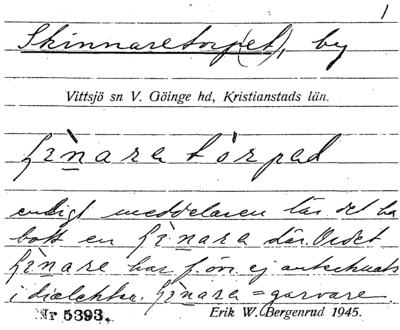 1
Skinnaretorp(et), by
Vittsjö sn V. Göinge hd, Kristianstads län.
enligt meddelaren lär det ha
bott en där. Ordet
har f. övr. ej antecknats
i dialekten. = garvare.
Nr 5393. Erik W. Bergenrud 1945.